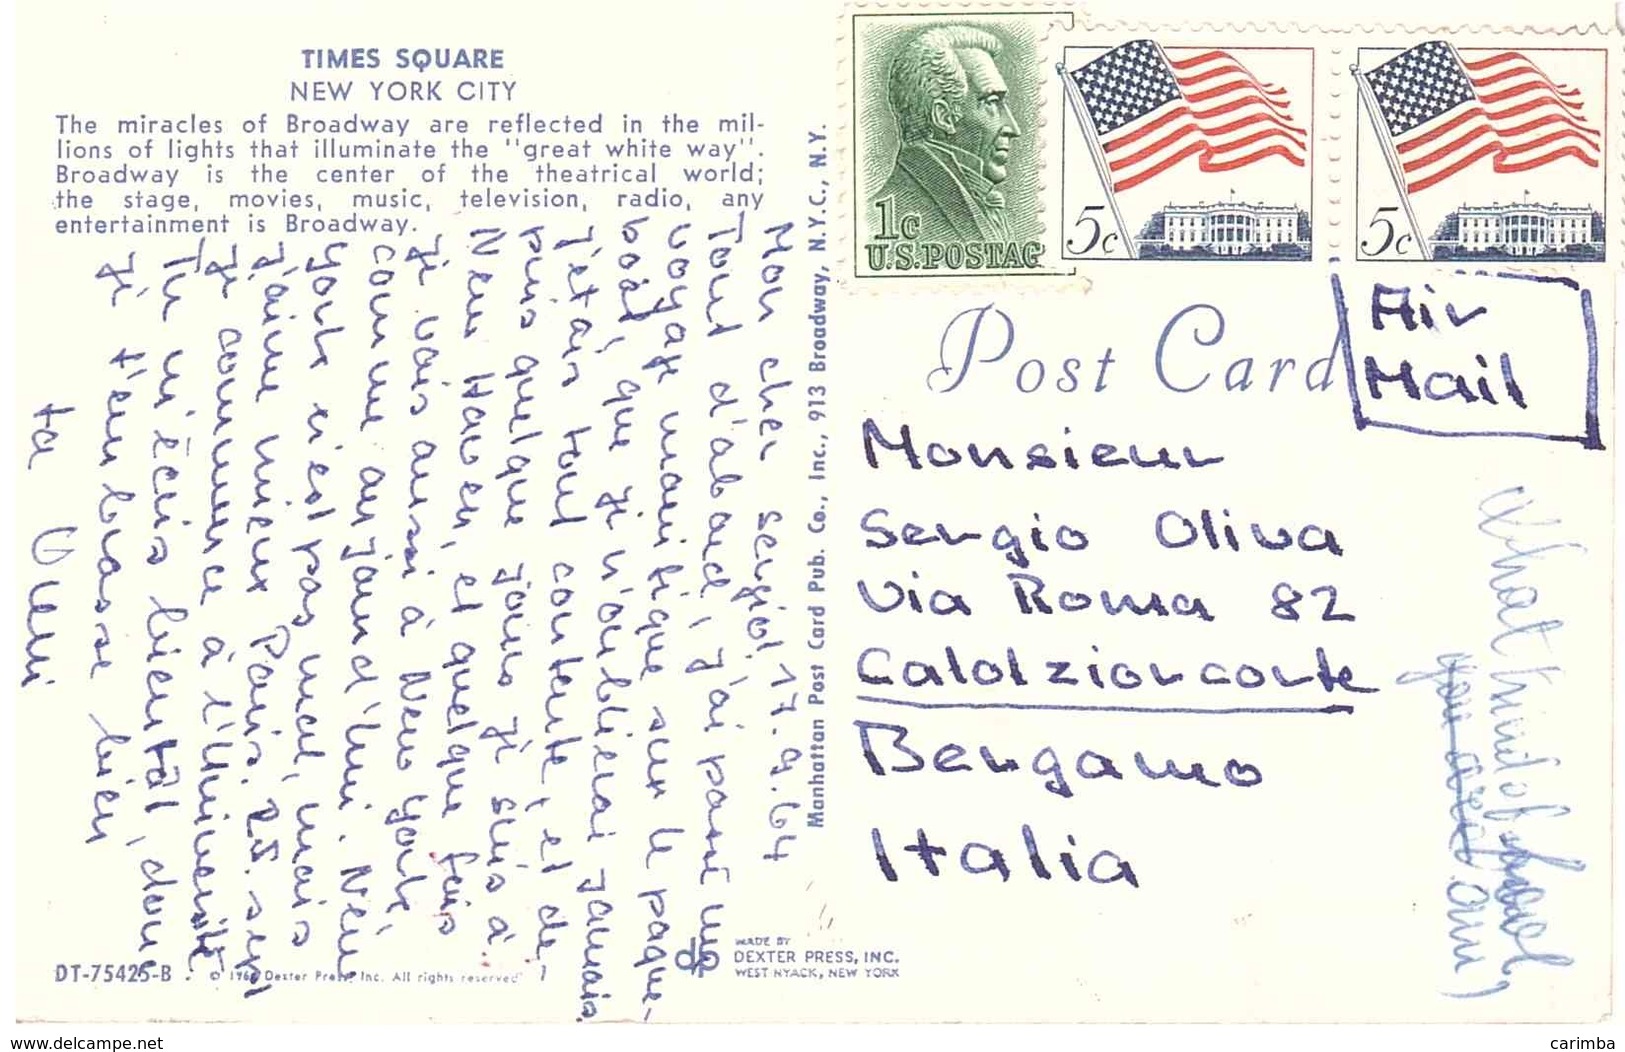 TIMES SQUARE
NEW YORK CITY
The miracles of Broadway are reflected in the mil-
lions of lights that illuminate the "great white way".
Broadway is the center of the theatrical world;
the stage, movies, music, television, radio, any
entertainment is Broadway.
Mon cher Sergio! 17.9.64
Tout d'abord, j'ai passé un
voyage manifique sur le paque-
boât, que je n'oublierai jamais.
J'étais tout contente, et de-
puis quelque jours je suis à
New Haven, et quelque fois
je vais aussi à New York
comme aujourd'hui. New
York n'est pas mal, mais
j'aime mieux Paris. 25. sept
je commence à l'Université
Tu m'écris bientôt, donc
Je t'embrasse bien
ta
Manhattan Post Card Pub. Co., Inc., 913 Broadway, N.Y.C., N.Y.
DT-75425-B
© Dexter Press, Inc. All rights reserved
MADE BY
DEXTER PRESS, INC.
WEST NYACK, NEW YORK
1c
U.S. POSTAG
5c
5c
Post Card
Air
Mail
Monsieur
Sergio Oliva
Via Roma 82
Calolziorcorte
Bergamo
Italia
What kind of school
you are at
www.delcampe.net
carimba